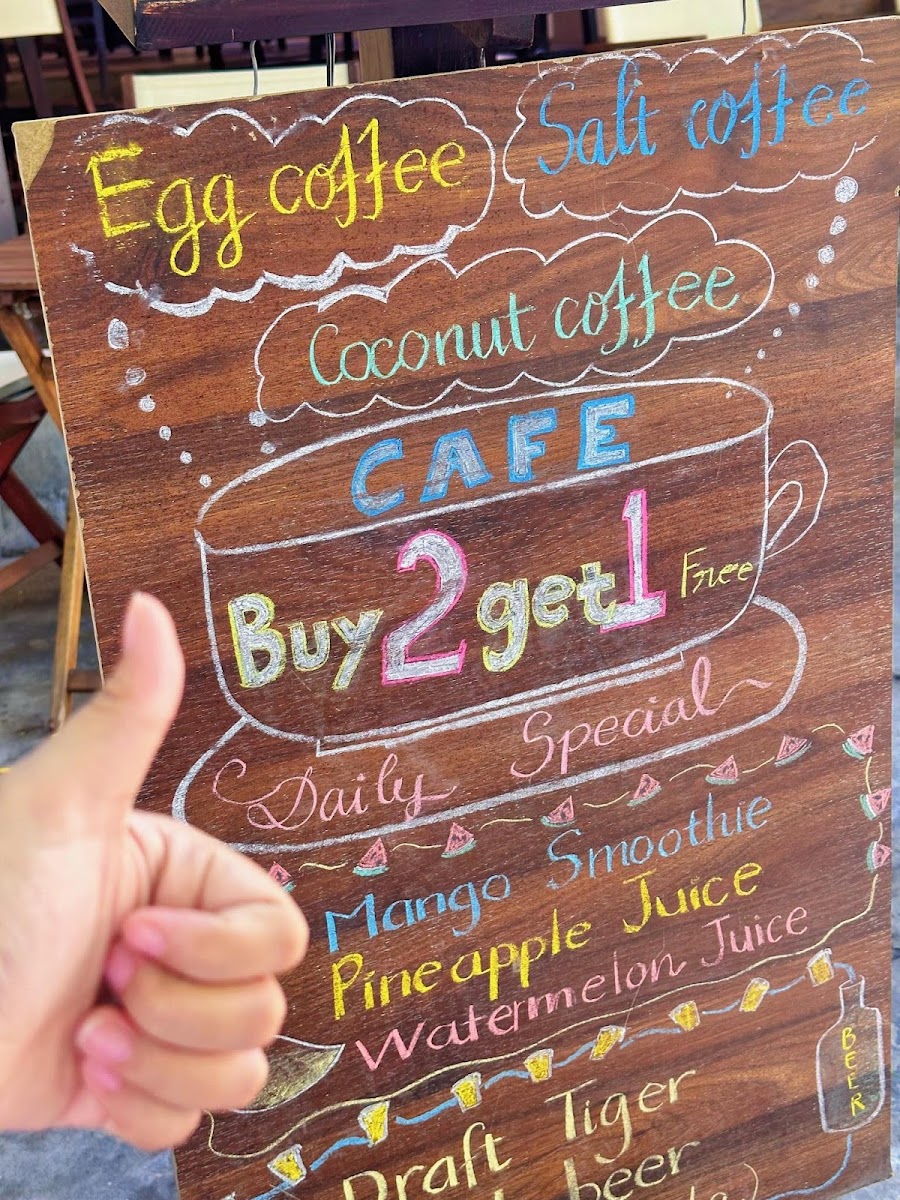 Egg coffee
Salt coffee
Coconut coffee
CAFE
Buy 2 get 1 Free
Daily Special
Mango Smoothie
Pineapple Juice
Watermelon Juice
BEER
Draft Tiger
beer